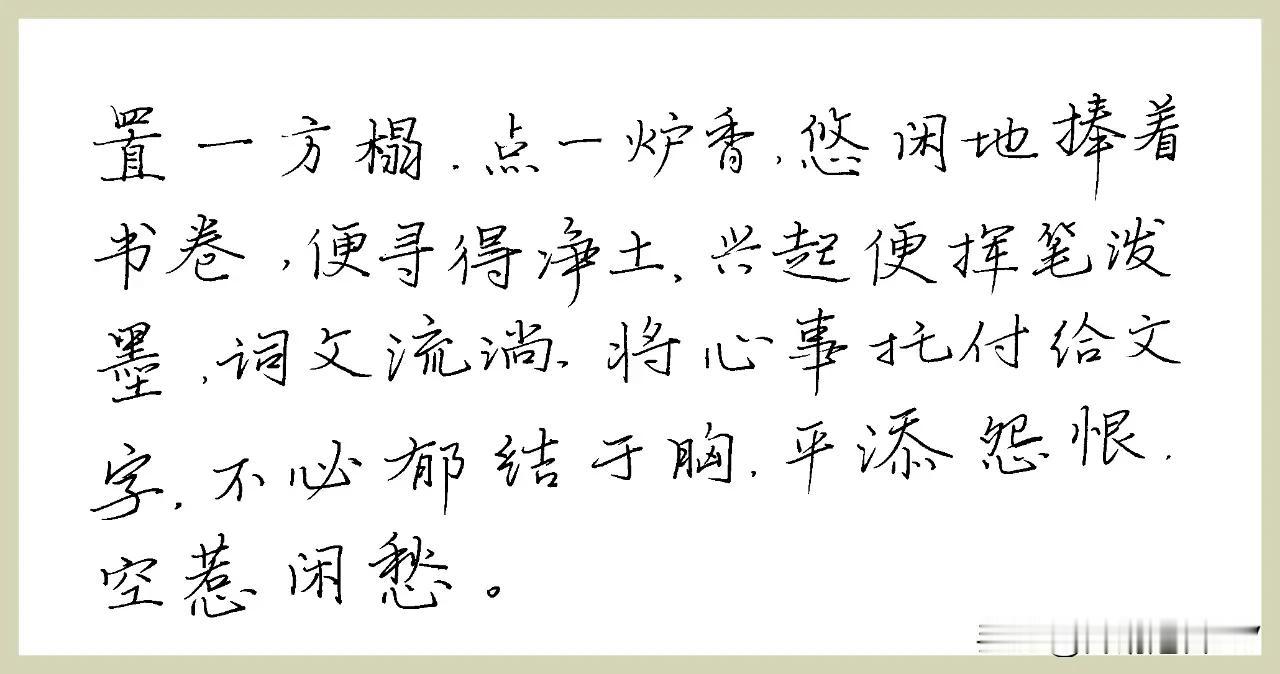 置一方榻，点一炉香，悠闲地捧着
书卷，便寻得净土，兴起便挥笔泼
墨，词文流淌，将心事托付给文
字，不必郁结于胸，平添怨恨，
空惹闲愁。